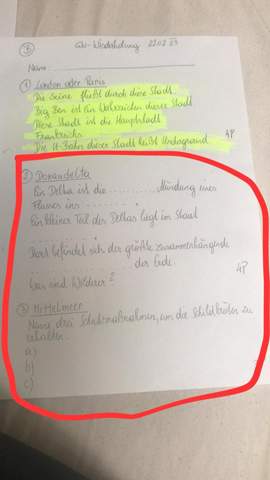 GW-Wiederholung 22.02.23
Name:
① London oder Paris
Die Seine fließt durch diese Stadt.
Big Ben ist ein Wahrzeichen dieser Stadt
Diese Stadt ist die Hauptstadt
Frankreichs
4P
Die U-Bahn dieser Stadt heißt Underground
② Donaudelta
Ein Delta ist die .......... Mündung eines
Flusses ins ..........
Ein kleiner Teil des Deltas liegt im Staat
..........
Dort befindet sich der größte zusammenhängende
.......... der Erde.
4P
Was sind Wilderer?
③ Mittelmeer
Nenne drei Schutzmaßnahmen, um die Schildkröten zu
erhalten.
a)
b)
c)